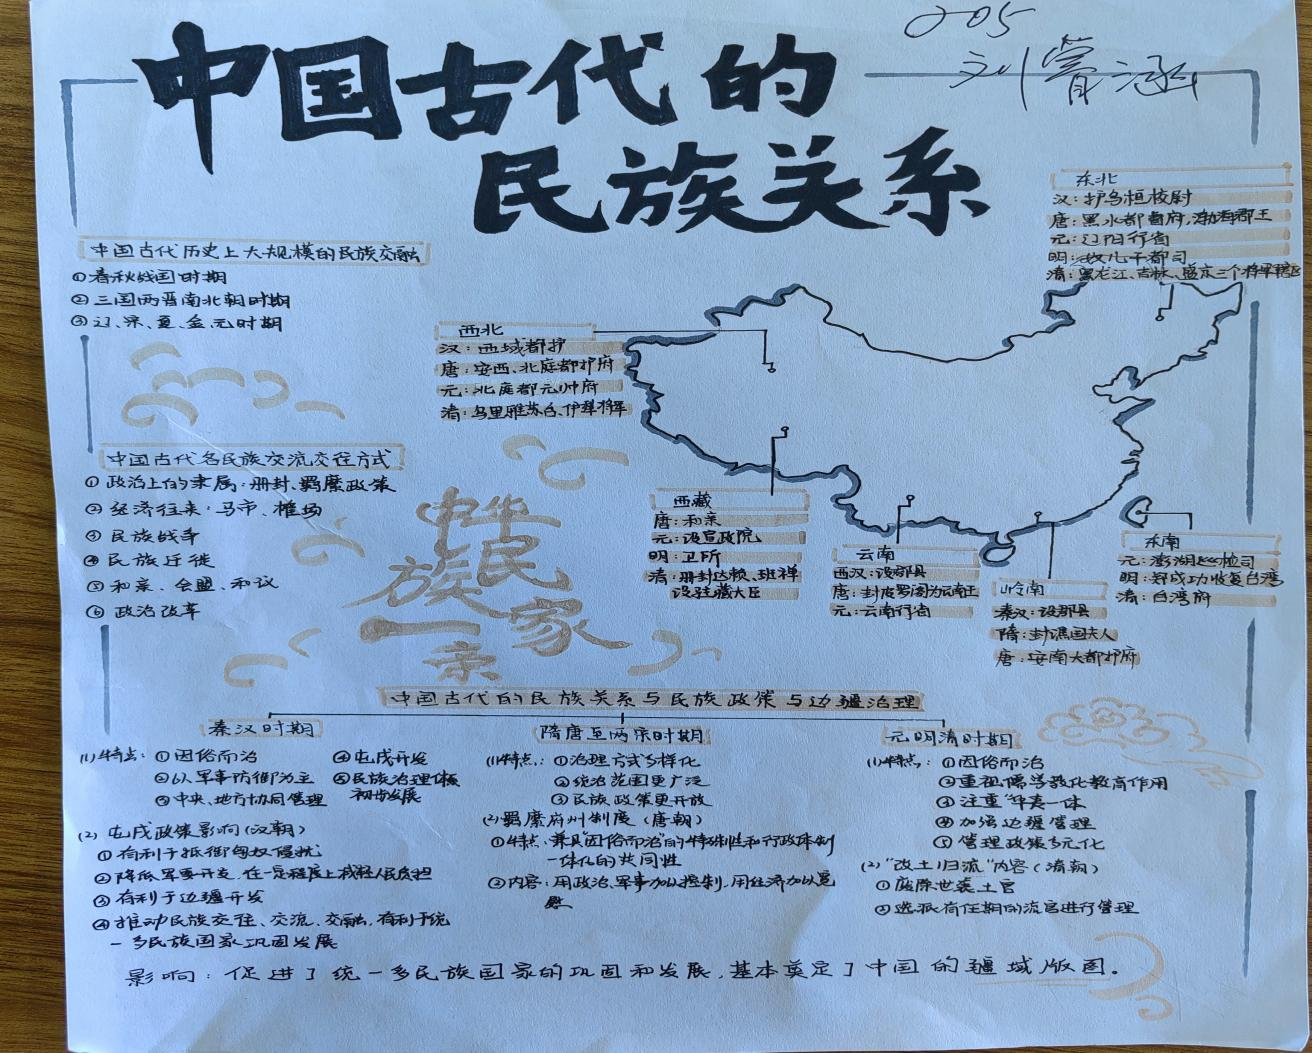 中国古代的
民族关系
205
刘霄涵
中国古代历史上大规模的民族交融
①春秋战国时期
②三国两晋南北朝时期
③辽、宋、夏、金、元时期
中国古代各民族交流交往方式
①政治上的隶属：册封、羁縻政策
②经济往来：马市、榷场
③民族战争
④民族迁徙
⑤和亲、会盟、和议
⑥政治改革
中华
民族
一家
亲
东北
汉：护乌桓校尉
唐：黑水都督府，渤海郡王
元：辽阳行省
明：奴儿干都司
清：黑龙江、吉林、盛京三个将军辖区
西北
汉：西域都护
唐：安西、北庭都护府
元：北庭都元帅府
清：乌里雅苏台、伊犁将军
西藏
唐：和亲
元：设宣政院
明：卫所
清：册封达赖、班禅
设驻藏大臣
云南
西汉：设郡县
唐：封皮罗阁为云南王
元：云南行省
岭南
秦汉：设郡县
隋：封谯国夫人
唐：安南大都护府
东南
元：澎湖巡检司
明：郑成功收复台湾
清：台湾府
中国古代的民族关系与民族政策与边疆治理
秦汉时期
(1)特点：①因俗而治 ④屯戍开发
②以军事防御为主 ⑤民族治理体系
初步发展
③中央、地方协同管理
(2)屯戍政策影响(汉朝)
①有利于抵御匈奴侵扰
②降低军费开支，在一定程度上减轻人民负担
③有利于边疆开发
④推动民族交往、交流、交融，有利于统
一多民族国家巩固发展
隋唐至两宋时期
(1)特点：①治理方式多样化
②统治范围更广泛
③民族政策更开放
(2)羁縻府州制度（唐朝）
①特点：兼具"因俗而治"的特殊性和行政体制
一体化的共同性
②内容：用政治、军事加以控制，用经济加以笼
元明清时期
(1)特点：①因俗而治
②重视儒学教化教育作用
③注重"华夷一体"
④加强边疆管理
⑤管理政策多元化
(2)"改土归流"内容（清朝）
①废除世袭土官
②选派有任期的流官进行管理
影响：促进了统一多民族国家的巩固和发展，基本奠定了中国的疆域版图。